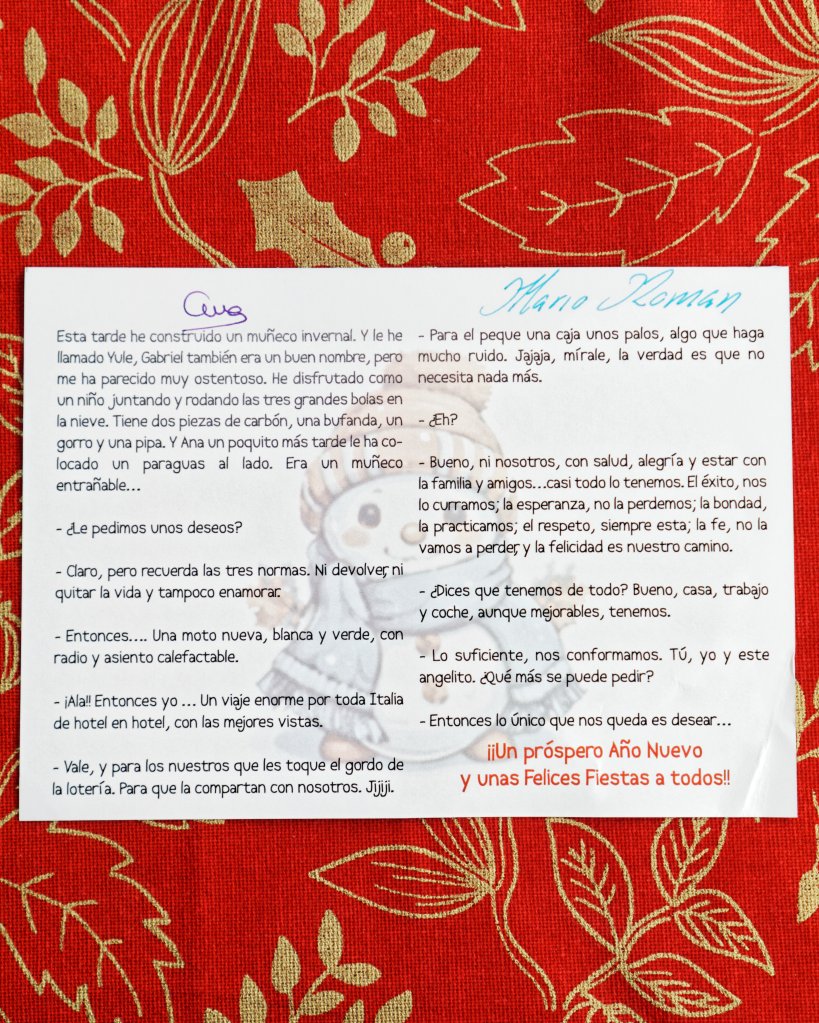 Ana
Esta tarde he construido un muñeco invernal. Y le he
llamado Yule, Gabriel también era un buen nombre, pero
me ha parecido muy ostentoso. He disfrutado como
un niño juntando y rodando las tres grandes bolas en
la nieve. Tiene dos piezas de carbón, una bufanda, un
gorro y una pipa. Y Ana un poquito más tarde le ha co-
locado un paraguas al lado. Era un muñeco
entrañable...
- ¿Le pedimos unos deseos?
- Claro, pero recuerda las tres normas. Ni devolver, ni
quitar la vida y tampoco enamorar.
- Entonces.... Una moto nueva, blanca y verde, con
radio y asiento calefactable.
- ¡Ala!! Entonces yo ... Un viaje enorme por toda Italia
de hotel en hotel, con las mejores vistas.
- Vale, y para los nuestros que les toque el gordo de
la lotería. Para que la compartan con nosotros. Jijiji.
Mario Roman
- Para el peque una caja unos palos, algo que haga
mucho ruido. Jajaja, mírale, la verdad es que no
necesita nada más.
- ¿Eh?
- Bueno, ni nosotros, con salud, alegría y estar con
la familia y amigos...casi todo lo tenemos. El éxito, nos
lo curramos; la esperanza, no la perdemos; la bondad,
la practicamos; el respeto, siempre esta; la fe, no la
vamos a perder, y la felicidad es nuestro camino.
- ¿Dices que tenemos de todo? Bueno, casa, trabajo
y coche, aunque mejorables, tenemos.
- Lo suficiente, nos conformamos. Tú, yo y este
angelito. ¿Qué más se puede pedir?
- Entonces lo único que nos queda es desear...
¡¡Un próspero Año Nuevo
y unas Felices Fiestas a todos!!